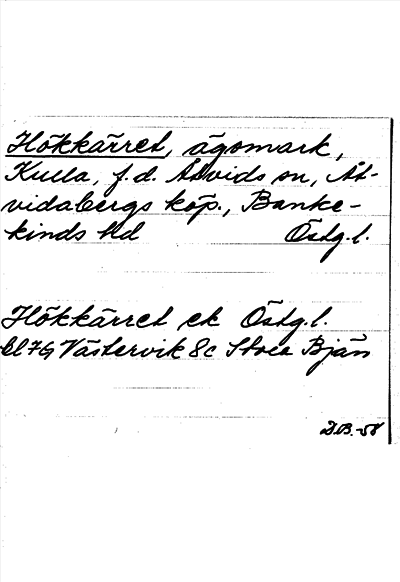 Hökkärret, ägomark,
Kulla, f.d. Åtvids sn, Åt-
vidabergs köp., Banke-
kinds hd Östg.l.
Hökkärret ek Östg.l.
bl 7G Västervik 8c Stora Bjän
D.B.-58